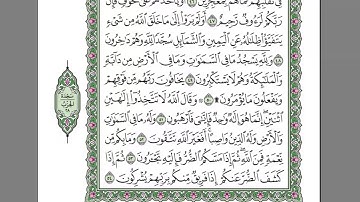 في تقلبهم فما هم بمعجزين ٤٦ أو يأخذهم على تخوف فإن
ربكم لرءوف رحيم ٤٧ أولم يروا إلى ما خلق الله من شيء
يتفيؤا ظلاله عن اليمين والشمائل سجدا لله وهم داخرون
٤٨ ولله يسجد ما في السماوات وما في الأرض من دابة
والملائكة وهم لا يستكبرون ٤٩ يخافون ربهم من فوقهم
ويفعلون ما يؤمرون ۩ ٥٠ ۞ وقال الله لا تتخذوا إلهين
اثنين إنما هو إله واحد فإياي فارهبون ٥١ وله ما في السماوات
والأرض وله الدين واصبا أفغير الله تتقون ٥٢ وما بكم من
نعمة فمن الله ثم إذا مسكم الضر فإليه تجئرون ٥٣ ثم إذا
كشف الضر عنكم إذا فريق منكم بربهم يشركون ٥٤